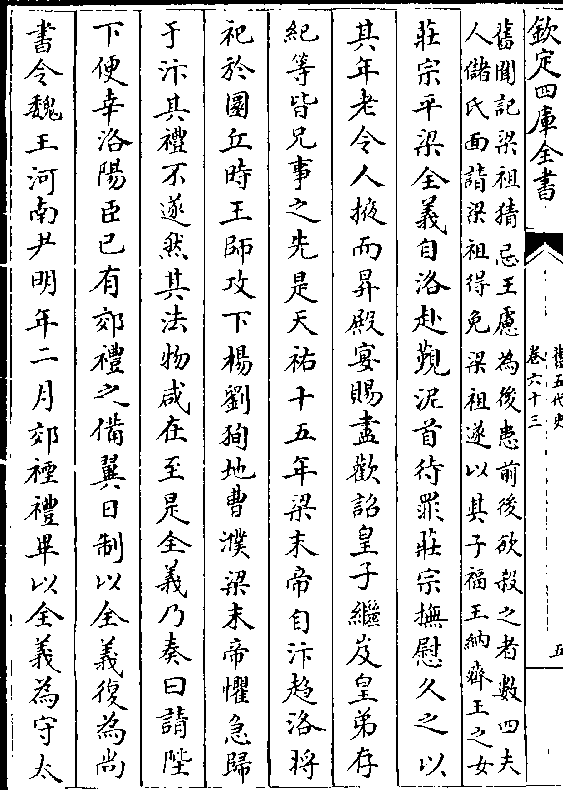 欽定四庫全書
舊五代史
卷六十三
五
舊聞記梁祖猜忌王慮為後患前後欲殺之者數四夫
人儲氏面請梁祖得免梁祖遂以其子福王納齊王之女
莊宗平梁全義自洛赴覲泥首待罪莊宗撫慰久之以
其年老令人掖而昇殿宴賜盡歡詔皇子繼岌皇弟存
紀等皆兄事之先是天祐十五年梁末帝自汴趨洛將
祀於圜丘時王師攻下楊劉狥地曹濮梁末帝懼急歸
于汴其禮不遂然其法物咸在至是全義乃奏曰請陛
下便幸洛陽臣已有郊禮之備翼日制以全義復為尚
書令魏王河南尹明年二月郊禋禮畢以全義為守太